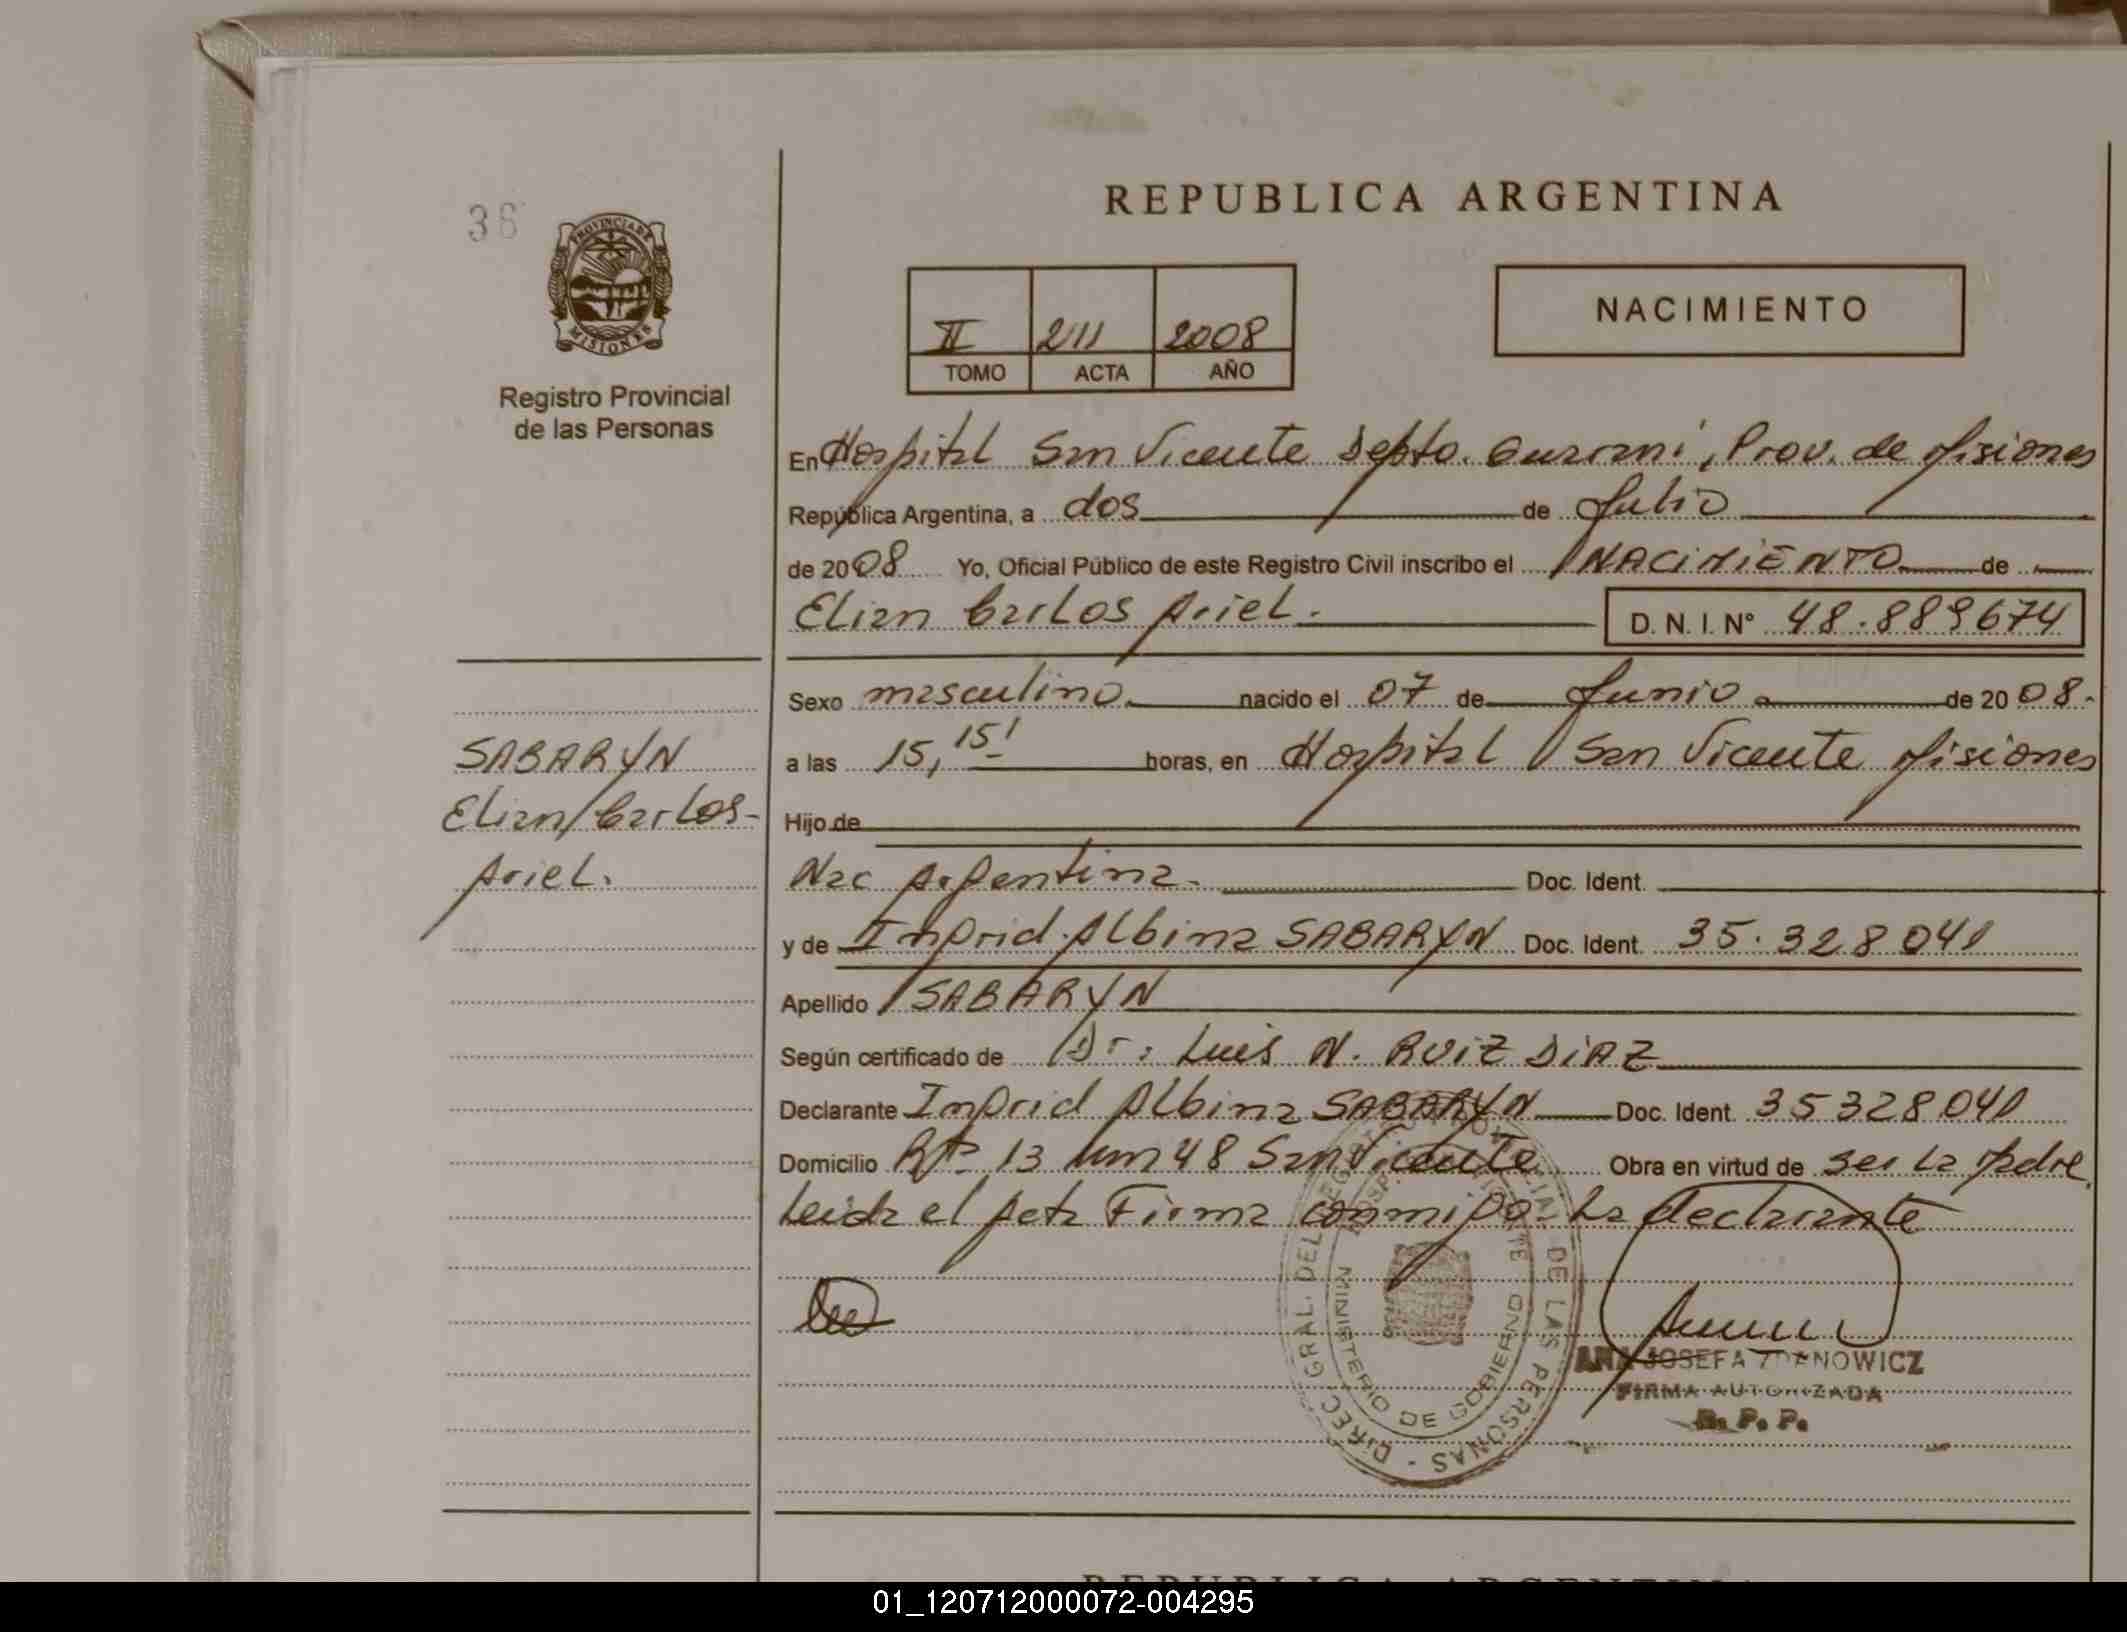 REPUBLICA ARGENTINA
36
PROVINCIA DE
MISIONES
Registro Provincial
de las Personas
II 211 2008
TOMO ACTA AÑO
NACIMIENTO
En Hospital San Vicente Depto. Guarani, Prov. de Misiones
República Argentina, a dos de Julio
de 2008 Yo, Oficial Público de este Registro Civil inscribo el NACIMIENTO de
Elian Carlos Ariel.
D. N. I. N° 48.889674
Sexo masculino nacido el 07 de Junio de 2008.
a las 15,15' horas, en Hospital San Vicente Misiones
Hijo de
Nac Argentina. Doc. Ident.
y de Ingrid Albina SABARYN Doc. Ident. 35.328041
Apellido SABARYN
Según certificado de Dr: Luis N. RUIZ DIAZ
Declarante Ingrid Albina SABARYN Doc. Ident. 35328041
Domicilio Rta 13 km 48 San Vicente Obra en virtud de ser la Madre
Leida el Acta Firma conmigo La declarante
SABARYN
Elian Carlos-
Ariel.
DIREC. GRAL. DEL REGISTRO PROVINCIAL DE LAS PERSONAS -
MINISTERIO DE GOBIERNO
ANA JOSEFA ZDANOWICZ
FIRMA AUTORIZADA
R. P. P.
REPUBLICA ARGENTINA
01_120712000072-004295